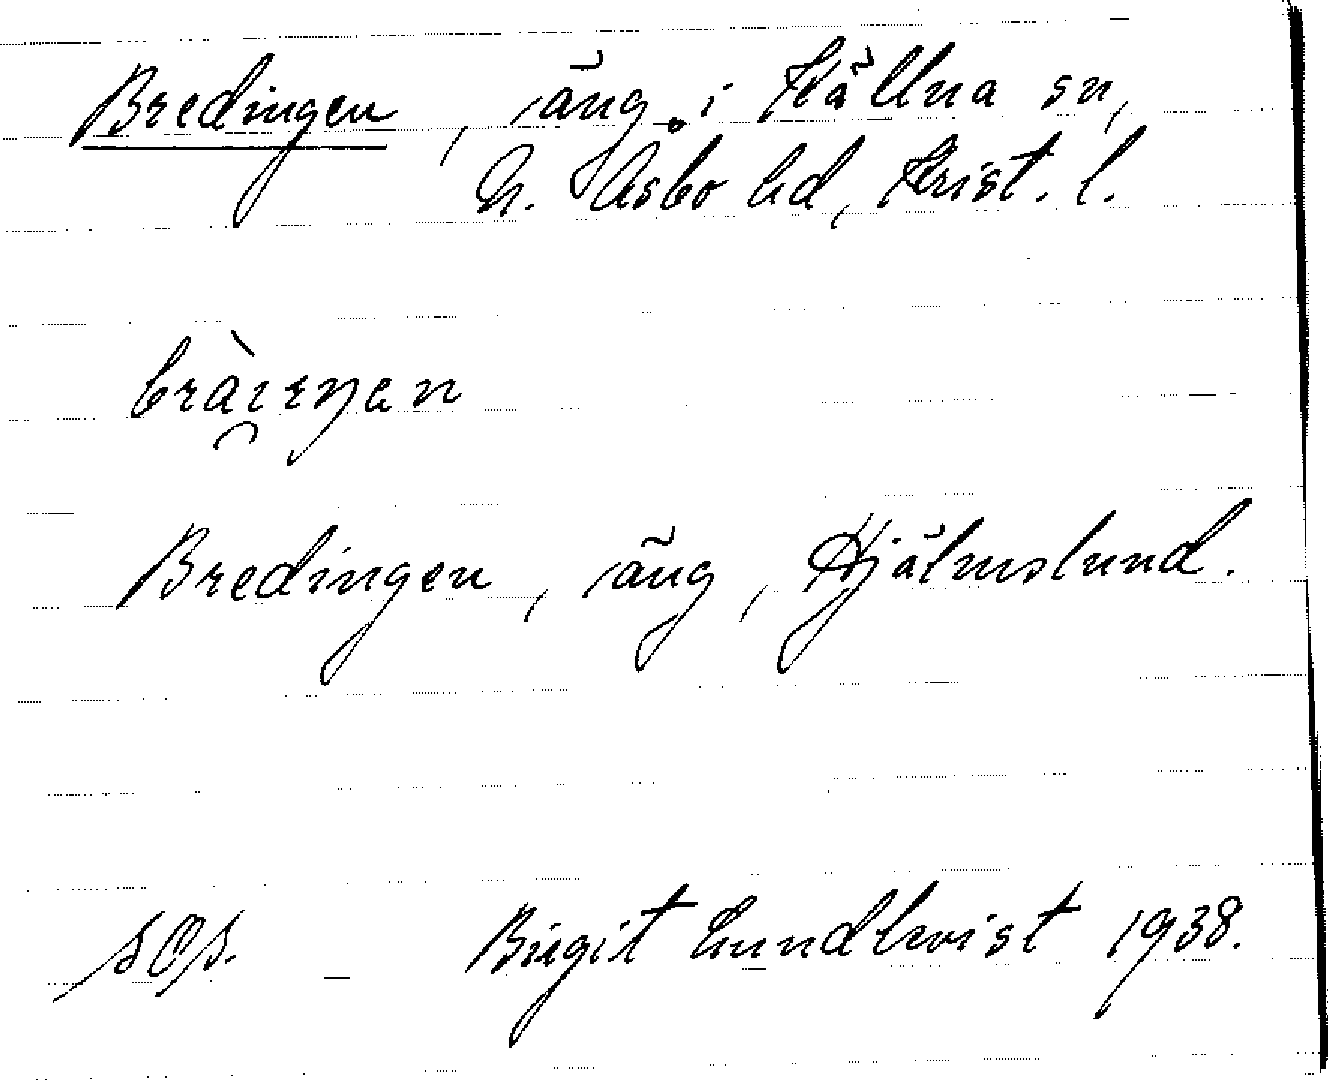 Bredingen, äng i Källna sn,
N. Åsbo hd, Krist. l.
Bredingen, äng, Hjälmslund.
SOS. - Birgit Lundkvist 1938.